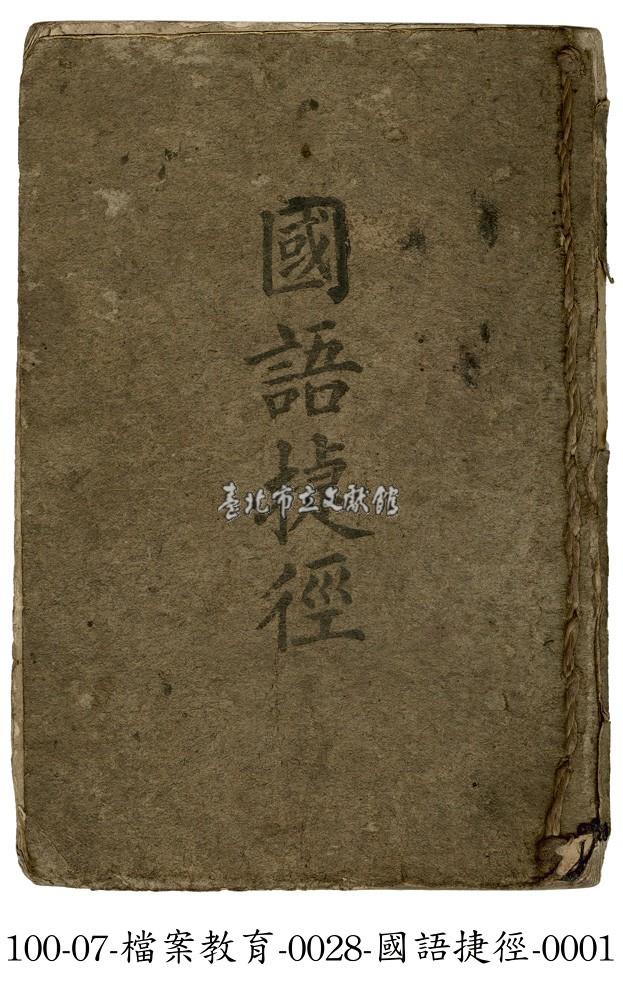 國語捷徑
臺北市立文獻館
100-07-檔案教育-0028-國語捷徑-0001